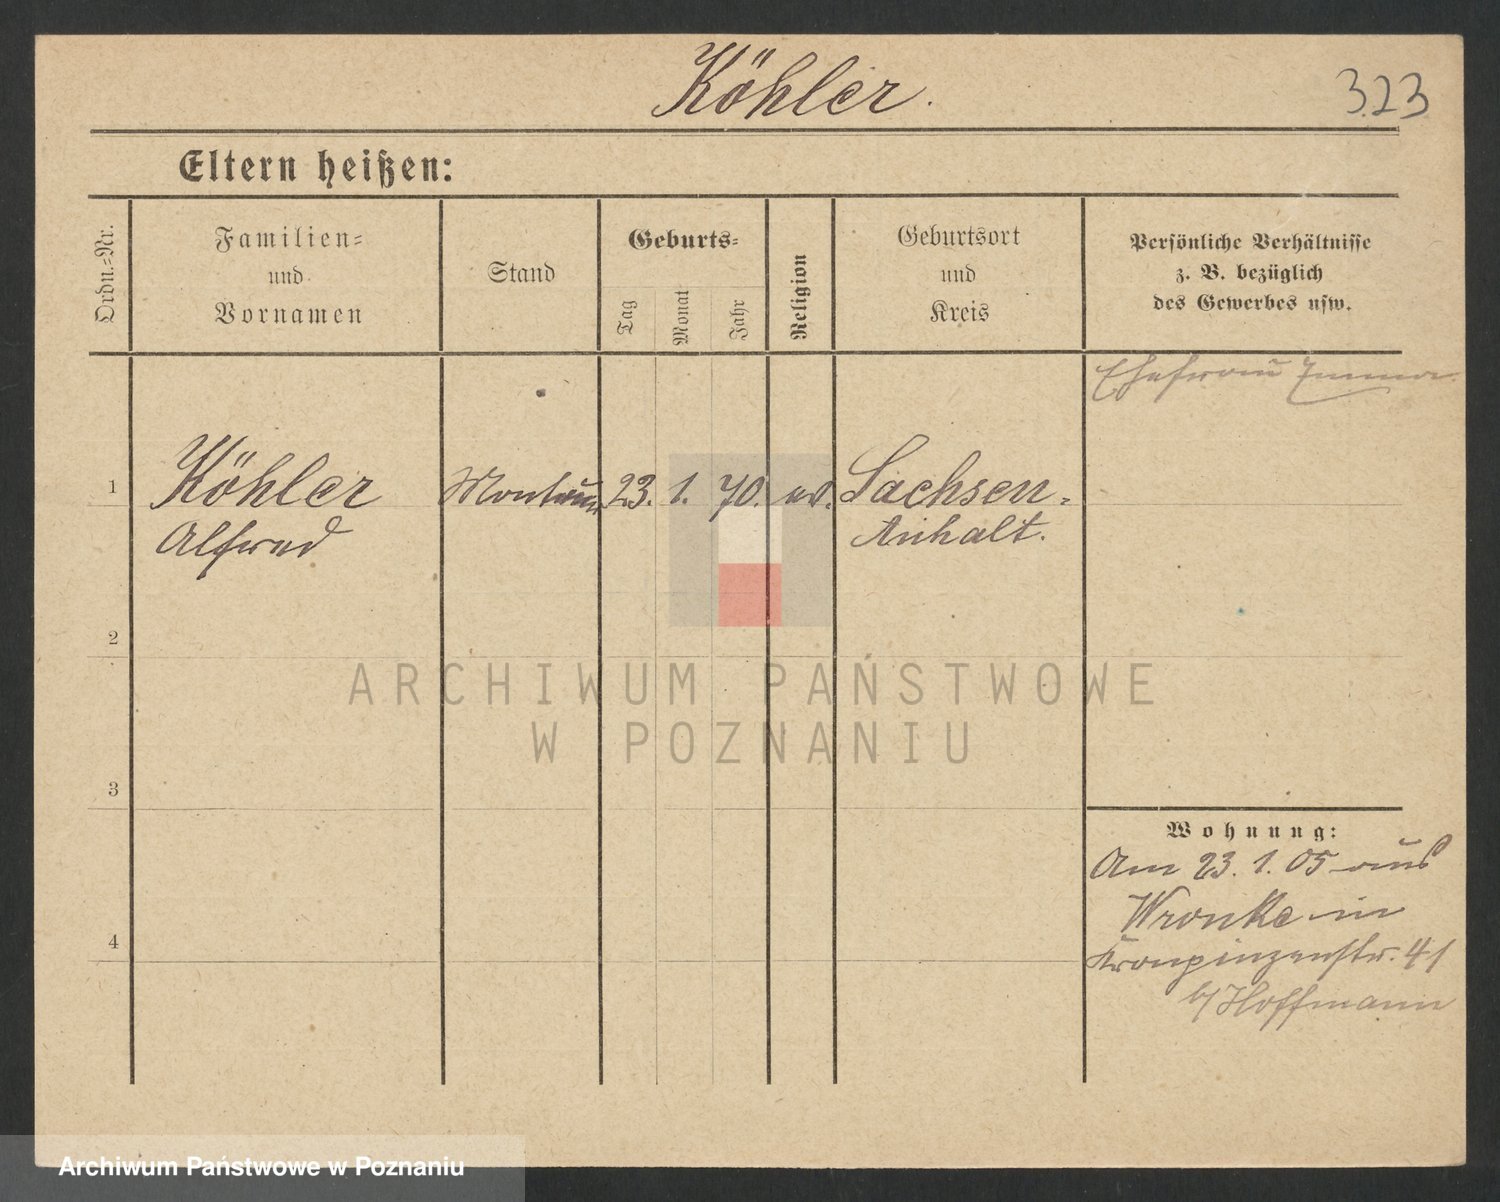 Köhler.
323
Eltern heißen:
Ordn.-Nr.
Familien-
und
Vornamen
Stand
Geburts-
Tag
Monat
Jahr
Religion
Geburtsort
und
Kreis
Persönliche Verhältnisse
z. B. bezüglich
des Gewerbes usw.
Ehefrau Emma
1
Köhler
Monteur
23.
1.
70.
ev.
Sachsen-
Alfred
Anhalt.
2
ARCHIWUM PAŃSTWOWE
W POZNANIU
3
Wohnung:
Am 23. 1. 05 aus
Wronke in
4
Kronpinzenstr. 41
b/ Hoffmann
Archiwum Państwowe w Poznaniu